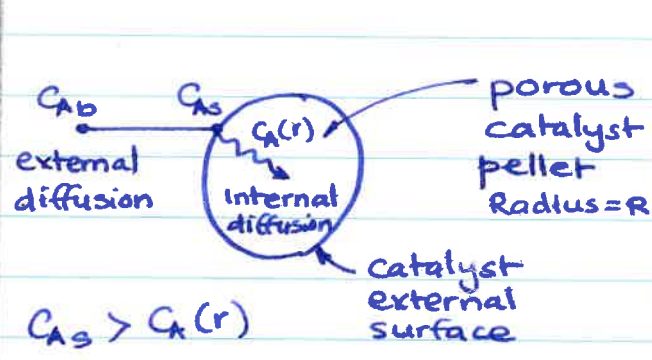 C_Ab
C_As
C_A(r)
external
diffusion
Internal
diffusion
porous
catalyst
pellet
Radius=R
catalyst
external
surface
C_As > C_A(r)